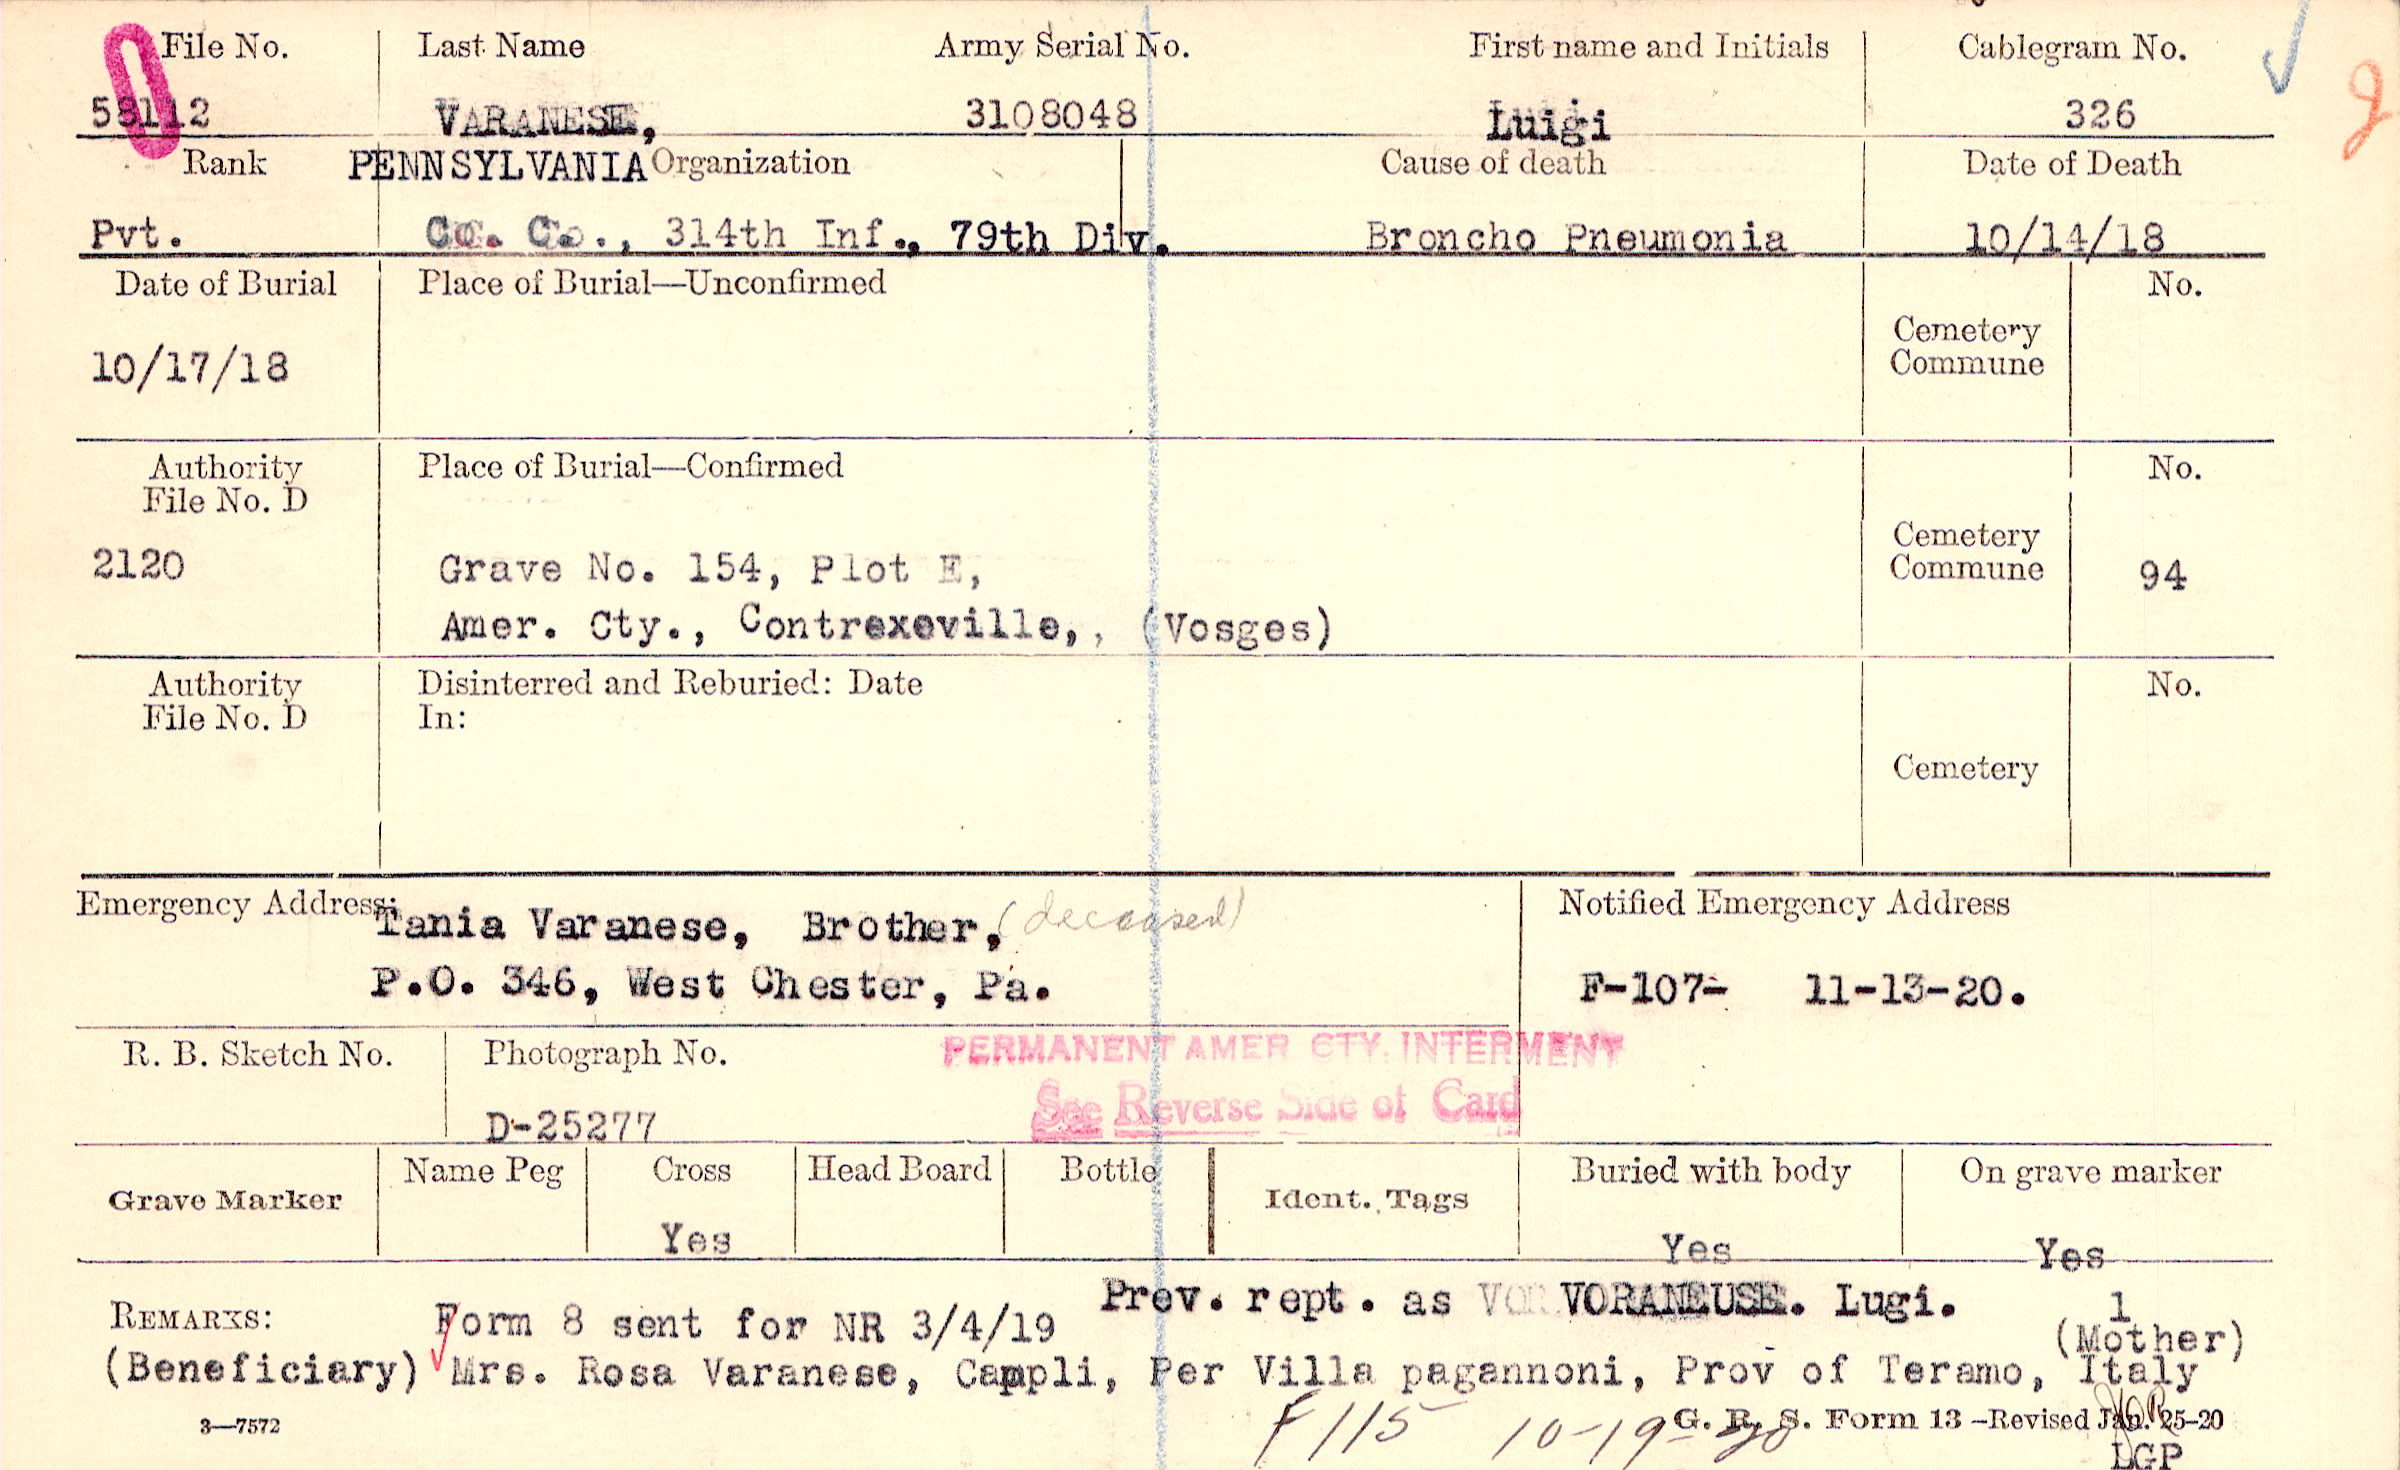 File No. Last Name Army Serial No. First name and Initials Cablegram No.
58112 VARANESE, 3108048 Luigi 326
Rank PENNSYLVANIA Organization Cause of death Date of Death
Pvt. Co. C., 314th Inf., 79th Div. Broncho Pneumonia 10/14/18
Date of Burial Place of Burial—Unconfirmed No.
Cemetery
Commune
10/17/18
Authority Place of Burial—Confirmed No.
File No. D
Cemetery
2120 Grave No. 154, Plot E, Commune 94
Amer. Cty., Contrexeville,, (Vosges)
Authority Disinterred and Reburied: Date No.
File No. D In:
Cemetery
Emergency Address: Notified Emergency Address
Tania Varanese, Brother, (deceased)
P.O. 346, West Chester, Pa. F-107- 11-13-20.
R. B. Sketch No. Photograph No. PERMANENT AMER CTY. INTERMENT
See Reverse Side of Card
D-25277
Grave Marker Name Peg Cross Head Board Bottle Ident. Tags Buried with body On grave marker
Yes Yes Yes
Prev. rept. as VOR VORANEUSE. Lugi. 1
REMARKS: Form 8 sent for NR 3/4/19 (Mother)
(Beneficiary) Mrs. Rosa Varanese, Campli, Per Villa pagannoni, Prov of Teramo, Italy
3—7572 F115 10-19-20 G. R. S. Form 13 -Revised Jan. 25-20
LGP